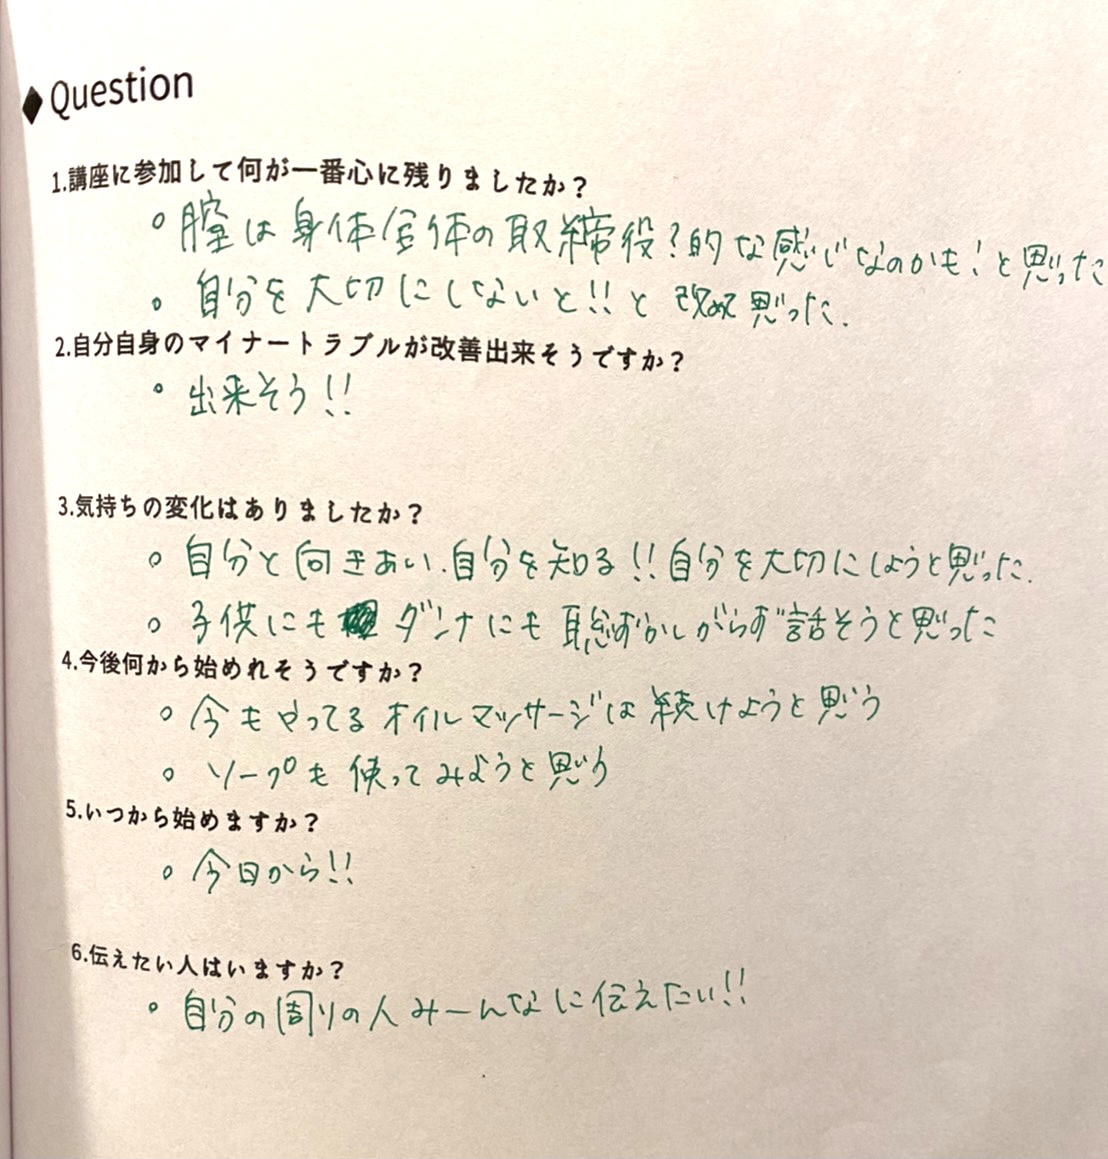 ◆Question
1.講座に参加して何が一番心に残りましたか?
。膣は身体全体の取締役?的な感じなのかも!と思った
。自分を大切にしないと!!と改めて思った.
2.自分自身のマイナートラブルが改善出来そうですか?
。出来そう!!
3.気持ちの変化はありましたか?
。自分と向きあい.自分を知る!!自分を大切にしようと思った.
。子供にもダンナにも恥ずかしがらず話そうと思った
4.今後何から始めれそうですか?
。今もやってるオイルマッサージは続けようと思う
。ソープも使ってみようと思う
5.いつから始めますか?
。今日から!!
6.伝えたい人はいますか?
。自分の周りの人みーんなに伝えたい!!